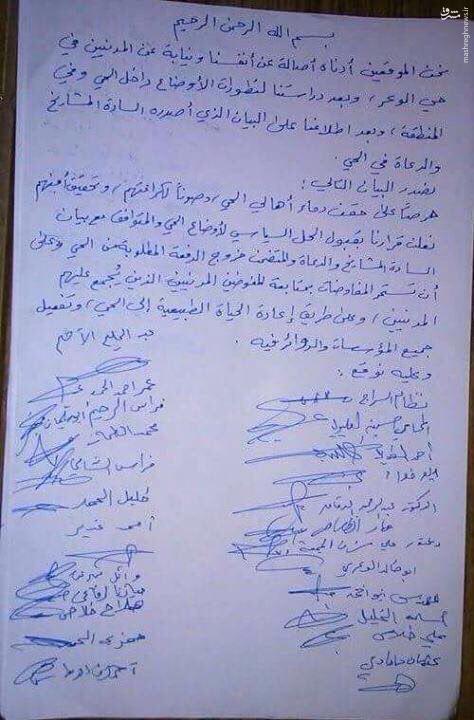 مشرق
mashreghnews.ir
بسم الله الرحمن الرحيم
نحن الموقعين أدناه أصالة عن أنفسنا ونيابة عن المدنيين في
حي الوعر، وبعد دراستنا لتطورات الأوضاع داخل الحي وفي
المنطقة، وبعد اطلاعنا على البيان الذي أصدره السادة المشايخ
والدعاة في الحي.
نصدر البيان التالي:
حرصاً على حقن دماء أهالي الحي، وصوناً لكرامتهم، وتحقيق أمنهم
نعلن قرارنا بقبول الحل السياسي لأوضاع الحي والمتوافق مع بيان
السادة المشايخ والدعاة والمتضمن خروج الدفعة المطلوبة من الحي وعلى
أن تستمر المفاوضات بمتابعة المفوضين المدنيين الذين يُجمع عليهم
المدنيين، وعن طريق إعادة الحياة الطبيعية إلى الحي، وتفعيل
جميع المؤسسات والدوائر فيه.
وعليه نوقع:
نظام السراج
الدكتور عبد الرحمن
ابو خالد الوعري
أسامة الخليل
علي خلاص
عمر احمد
فراس الرحيم
محمد
فراس
خليل
أحمد غدير
وائل
صلاح خلاص